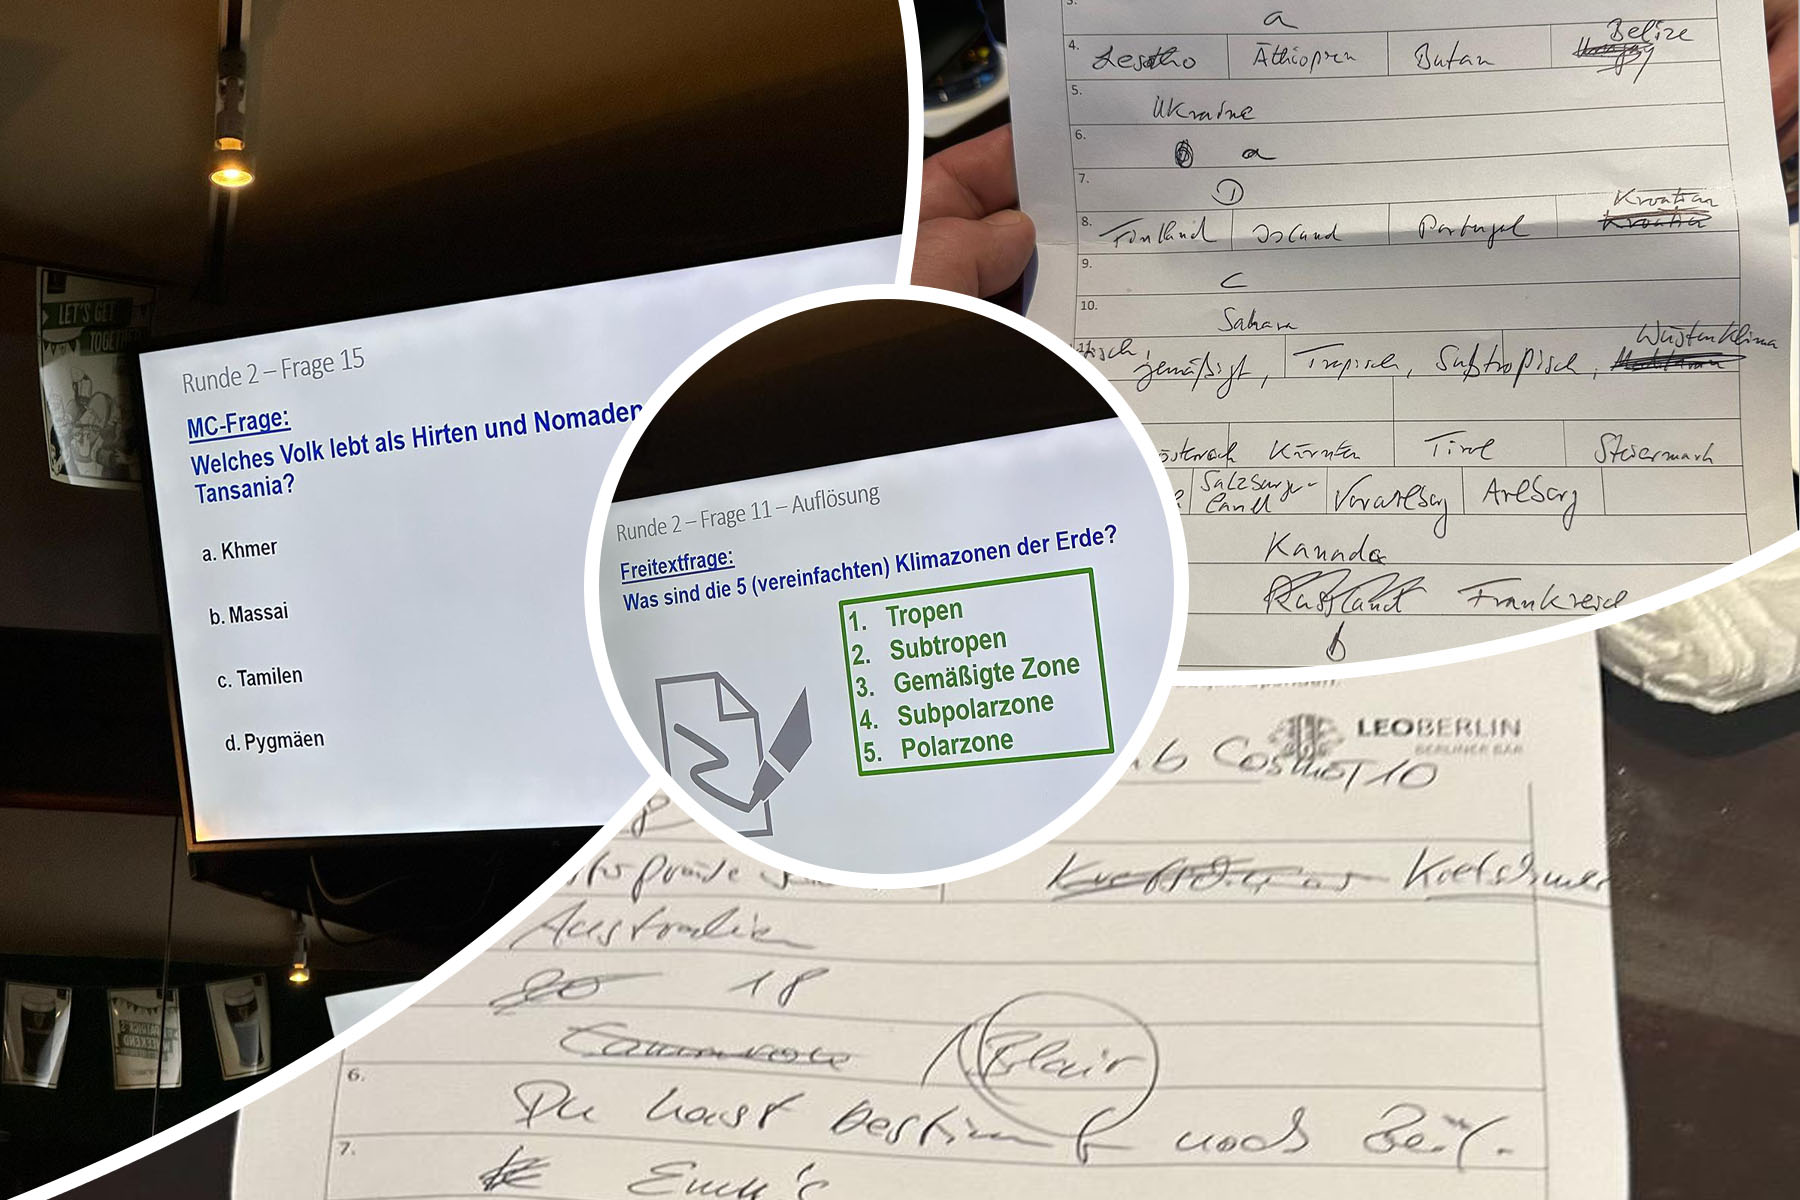 LET'S GET
TOGETHER
Runde 2 – Frage 15
MC-Frage:
Welches Volk lebt als Hirten und Nomaden
Tansania?
a. Khmer
b. Massai
c. Tamilen
d. Pygmäen
Runde 2 – Frage 11 – Auflösung
Freitextfrage:
Was sind die 5 (vereinfachten) Klimazonen der Erde?
1. Tropen
2. Subtropen
3. Gemäßigte Zone
4. Subpolarzone
5. Polarzone
3. a
4. Lesotho Äthiopien Butan Belize
5. Ukraine
6. a
7. 1
8. Finland Island Portugal Kroatien
9. c
10. Sahara
gemäßigt, Tropisch, Subtropisch, Wüstenklima
Kärnten Tirol Steiermark
Salzburger-
land Vorarlberg Arlberg
Kanada
Rußland Frankreich
b
LEOBERLIN
BERLINER BÄR
8
Kretschmer
Australien
20 18
Blair
6. Du hast bestimmt noch Zeit.
7.